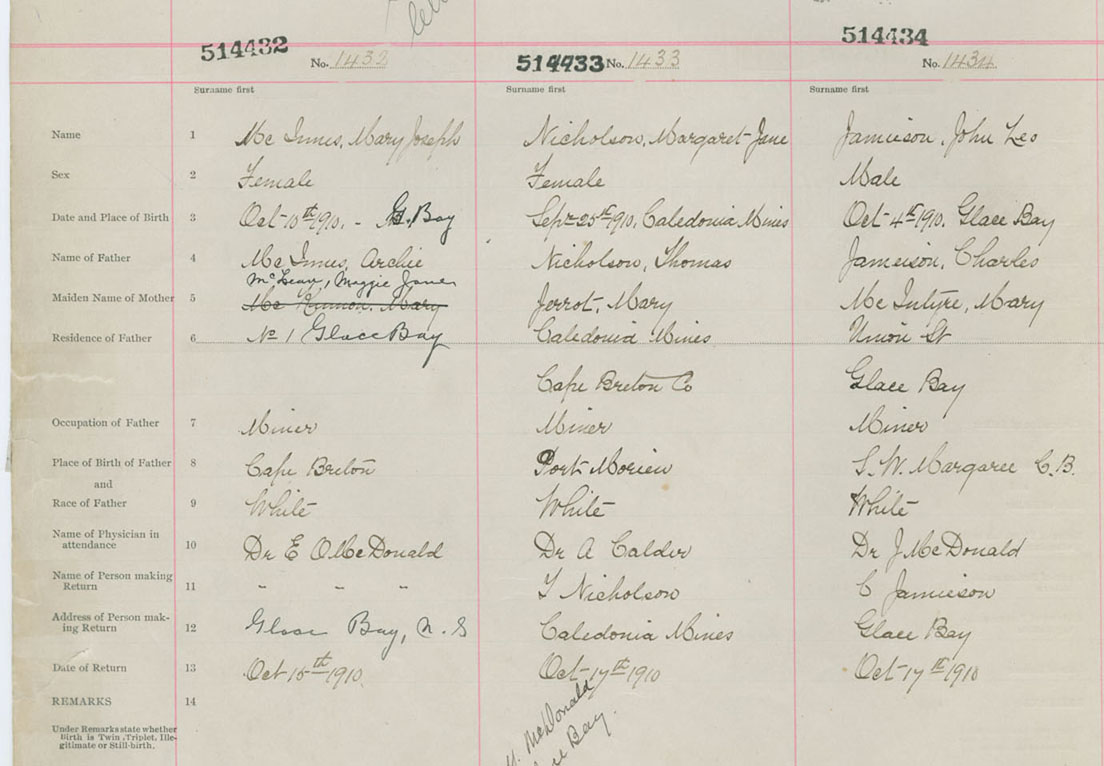 lette
514432
No. 1432
514433 No. 1433
514434
No. 1434
Surname first
Surname first
Surname first
Name 1 Mc Innes, Mary Joseph Nicholson, Margaret Jane Jamieson, John Leo
Sex 2 Female Female Male
Date and Place of Birth 3 Oct 10th 1910. - G. Bay Sepr 25th 1910, Caledonia Mines Oct 4th 1910. Glace Bay
Name of Father 4 Mc Innes, Archie Nicholson, Thomas Jameison, Charles
McLean, Maggie Jane
Maiden Name of Mother 5 Mc Kinnon, Mary Jerrot, Mary Mc Intyre, Mary
Residence of Father 6 No 1 Glace Bay Caledonia Mines Union St
Cape Breton Co Glace Bay
Occupation of Father 7 Miner Miner Miner
Place of Birth of Father 8 Cape Breton Port Morien S. W. Margaree C. B.
and
Race of Father 9 White White White
Name of Physician in
attendance 10 Dr E O McDonald Dr A Calder Dr J McDonald
Name of Person making
Return 11 " " " T Nicholson C Jamieson
Address of Person mak-
ing Return 12 Glace Bay, N. S Caledonia Mines Glace Bay
Date of Return 13 Oct 15th 1910. Oct 17th 1910 Oct 17th 1910
REMARKS 14
Under Remarks state whether
Birth is Twin, Triplet, Ille-
gitimate or Still-birth.
McDonald
Bay.